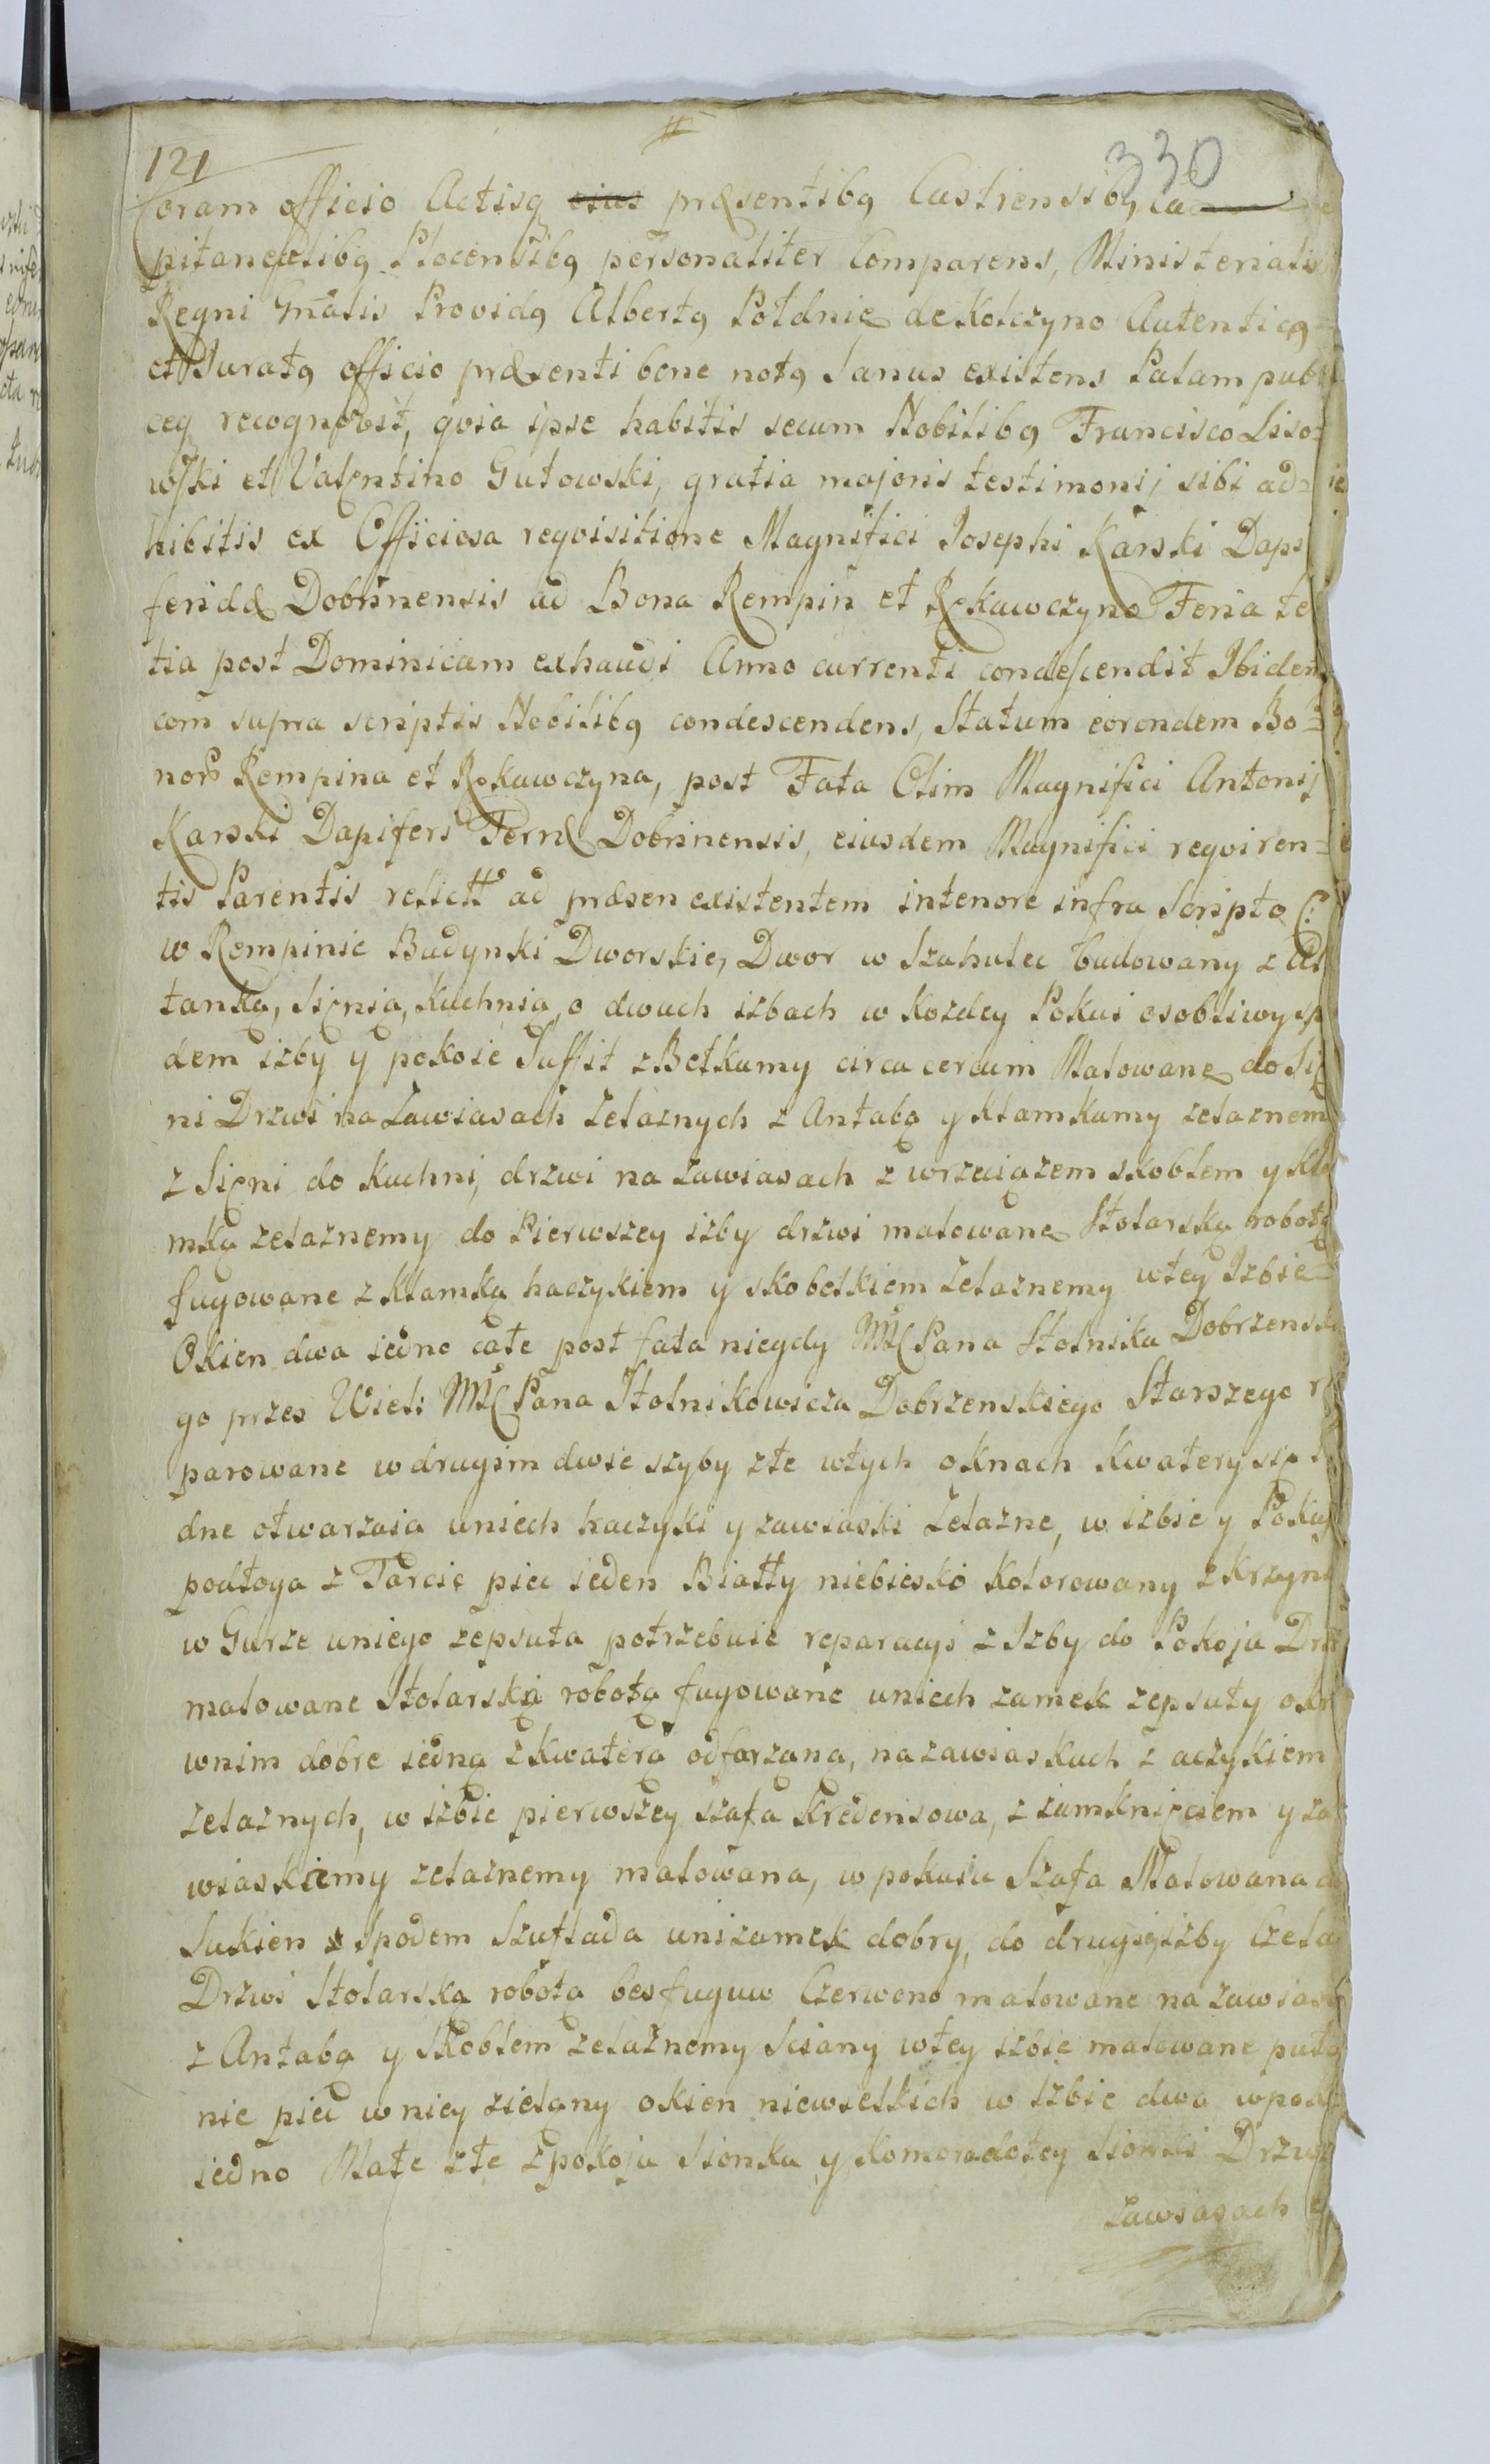 #
121
330
Coram officio Actisq eius præsentibq Castrensibq, Ca
pitanealibq Plocensibq personaliter Comparens, Ministerialis
Regni Gnalis Providq Albertq Połdnie de Kolczyno Autenticq
et Juratq officio præsenti bene notq Sanus existens Palam publi
ceq recognovit, qvia ipse habitis secum Nobilibq Francisco Liso=
wski et Valentino Gutowski, gratia majoris testimonij sibi ad=
hibitis ex Officiosa reqvisitione Magnifici Josephi Karski Dapi
feridæ Dobrinensis ad Bona Rempin et Rękawczyno Feria te
tia post Dominicam exhaudi Anno currenti condescendit Ibidem
com supra scriptis Nobilibq condescendens, Statum eorondem Bo=
nor Rempina et Rękawczyna, post Fata Olim Magnifici Antonij
Karski Dapiferi Terræ Dobrinensis, eiusdem Magnifici reqviren=
tis Parentis relictt ad præsen existentem intenore infra Scripto
w Rempinie Budynki Dworskie, Dwor w Szahulec budowany z Al
tanką, Sięnią, Kuchnią, o dwuch izbach w Kozdey Pokui osobliwy sp
dem izby y pokoie Suffit z Belkamy circa cercum Malowane do Się
ni Drzwi na Zawiasach Zelaznych z Antabą y Klamkamy zelaznem
z Sięni do Kuchni, drzwi na zawiasach z wrzeciązem skoblem y Kla
mką zelaznemy do Pierwszey izby drzwi malowane Stolarską robotą
fugowane z Klamką haczykiem y skobelkiem Zelaznemy wtey Izbie
Okien dwa iedno całe post fata niegdy MC Pana Stolnika Dobrzensk
go przes Wiel: MC Pana Stolnikowicza Dobrzenskiego Starszego r
parowane w drugim dwie szyby złe wtych oknach Kwatery się
dne otwarzaia uniech haczyki y zawiaski Zelazne, w izbie y Pokui
podłoga z Tarcic piec ieden Białły niebiesko Kolorowany z Krzyna
w Gurze uniego zepsuta potrzebuie reparacyi z Izby do Pokoju Drz
malowane Stolarską robotą fugowane uniech zamek zepsuty okn
wnim dobre iedną z kwaterą odfarzaną, na zawiaskach z aczykiem
zelaznych, w izbie pierwszey szafa Kredensowa, z zamknięciem y za
wiaskiemy zelaznemy malowana, w pokuiu Szafa Malowana d
Sukien Spodem Szuflada uni zamek dobry, do drugię izby Czela
Drzwi Stolarską robotą bes fuguw Czerwono malowane na zawias
z Antabą y Skoblem zelaznemy Sciany wtey izbie malowane puto
nie piec wniey zielany okien niewielkich w Izbie dwa wpo
iedno Małe złe z pokoju Sionka y Komora do tey Sionki Drzwi
Zawiasach